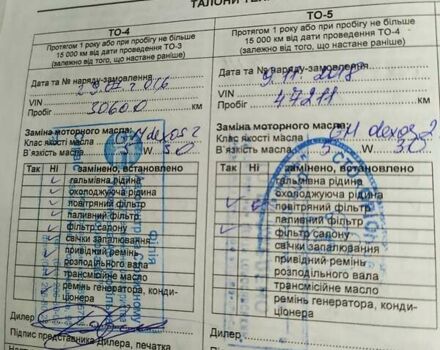 ТАЛОНИ ТЕХ
ТО-4
Протягом 1 року або при пробігу не більше
15 000 км від дати проведення ТО-3
(залежно від того, що настане раніше)
Дата та № наряду-замовлення
VIN
Пробіг 30600 км
Заміна моторного масла:
Клас якості масла GM dexos 2
В'язкість масла 5 W 30
Так Ні Замінено, встановлено
гальмівна рідина
охолоджуюча рідина
повітряний фільтр
паливний фільтр
фільтр салону
свічки запалювання
привідний ремінь
розподільного вала
трансмісійне масло
ремінь генератора, конди-
ціонера
Дилер
Підпис представника Дилера, печатка
ТО-5
Протягом 1 року або при пробігу не більше
15 000 км від дати проведення ТО-4
(залежно від того, що настане раніше)
Дата та № наряду-замовлення
9.11.2018
VIN
Пробіг 47211 км
Заміна моторного масла:
Клас якості масла GM dexos 2
В'язкість масла 5 W 30
Так Ні Замінено, встановлено
гальмівна рідина
охолоджуюча рідина
повітряний фільтр
паливний фільтр
фільтр салону
свічки запалювання
привідний ремінь
розподільного вала
трансмісійне масло
ремінь генератора, конди-
ціонера
Дилер
Підпис представника Дилера, печатка